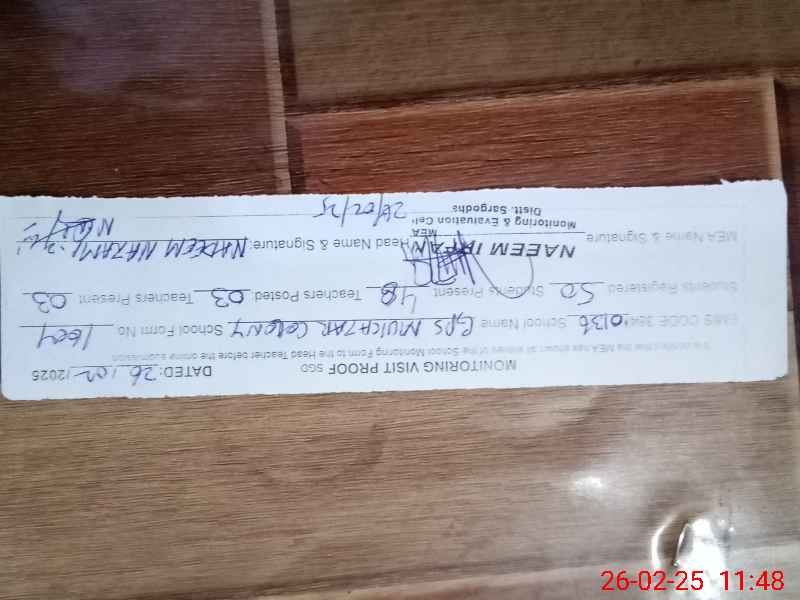 MONITORING VISIT PROOF SGD DATED: 26/02/2025
It is certified that the MEA has shown all entries of the School Monitoring Form to the Head Teacher before the online submission
EMIS CODE 384 10136 School Name GPS MUKHTAR COLONY School Form No
Students Registered 50 Students Present 48 Teachers Posted: 03 Teachers Present 03
MEA Name & Signature NAEEM Head Name & Signature: NADEEM NAZAMI
MEA
Monitoring & Evaluation Cell
Distt. Sargodha
26/02/25
26-02-25 11:48